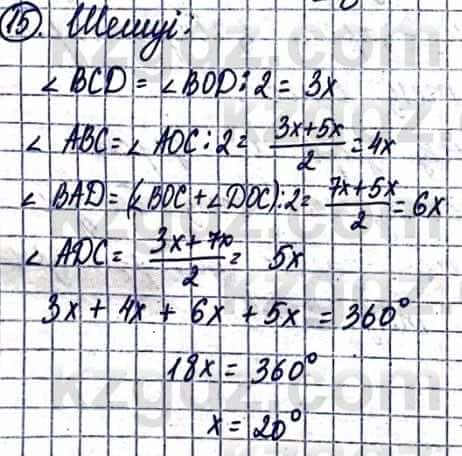 15. Шешуі:
∠ BCD = ∠ BOD : 2 = 3x
∠ ABC = ∠ AOC : 2 = (3x+5x)/2 = 4x
∠ BAD = (∠ BOC + ∠ DOC) : 2 = (7x+5x)/2 = 6x
∠ ADC = (3x+7x)/2 = 5x
3x + 4x + 6x + 5x = 360°
18x = 360°
x = 20°